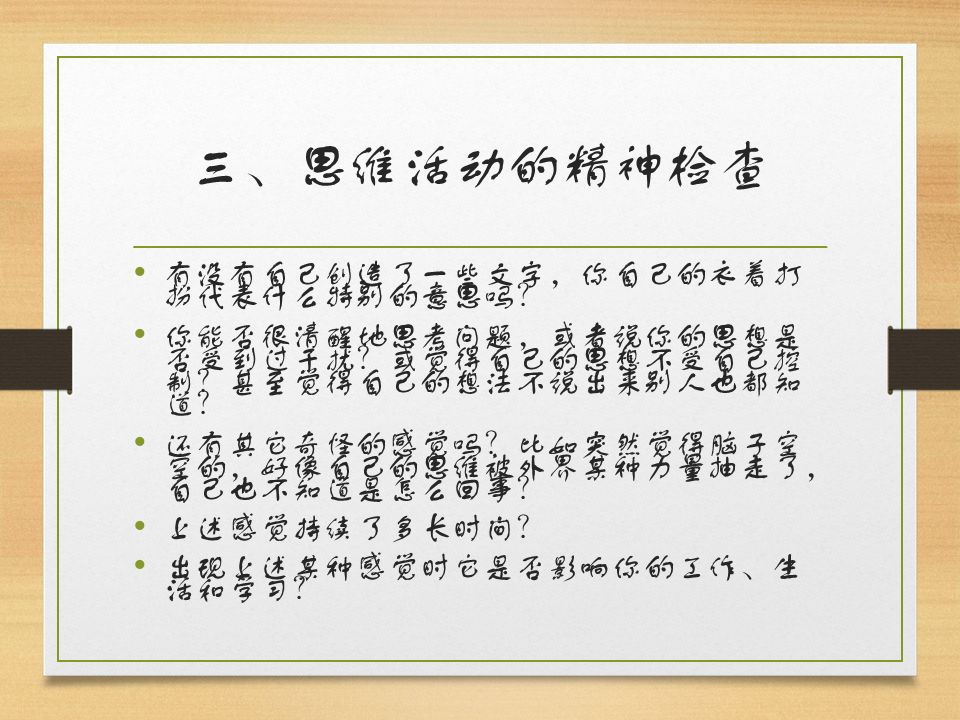 三、思维活动的精神检查
• 有没有自己创造了一些文字，你自己的衣着打
扮代表什么特别的意思吗？
• 你能否很清醒地思考问题，或者说你的思想是
否受到过干扰？或觉得自己的思想不受自己控
制？甚至觉得自己的想法不说出来别人也都知
道？
• 还有其它奇怪的感觉吗？比如突然觉得脑子空
空的，好像自己的思维被外界某种力量抽走了，
自己也不知道是怎么回事？
• 上述感觉持续了多长时间？
• 出现上述某种感觉时它是否影响你的工作、生
活和学习？